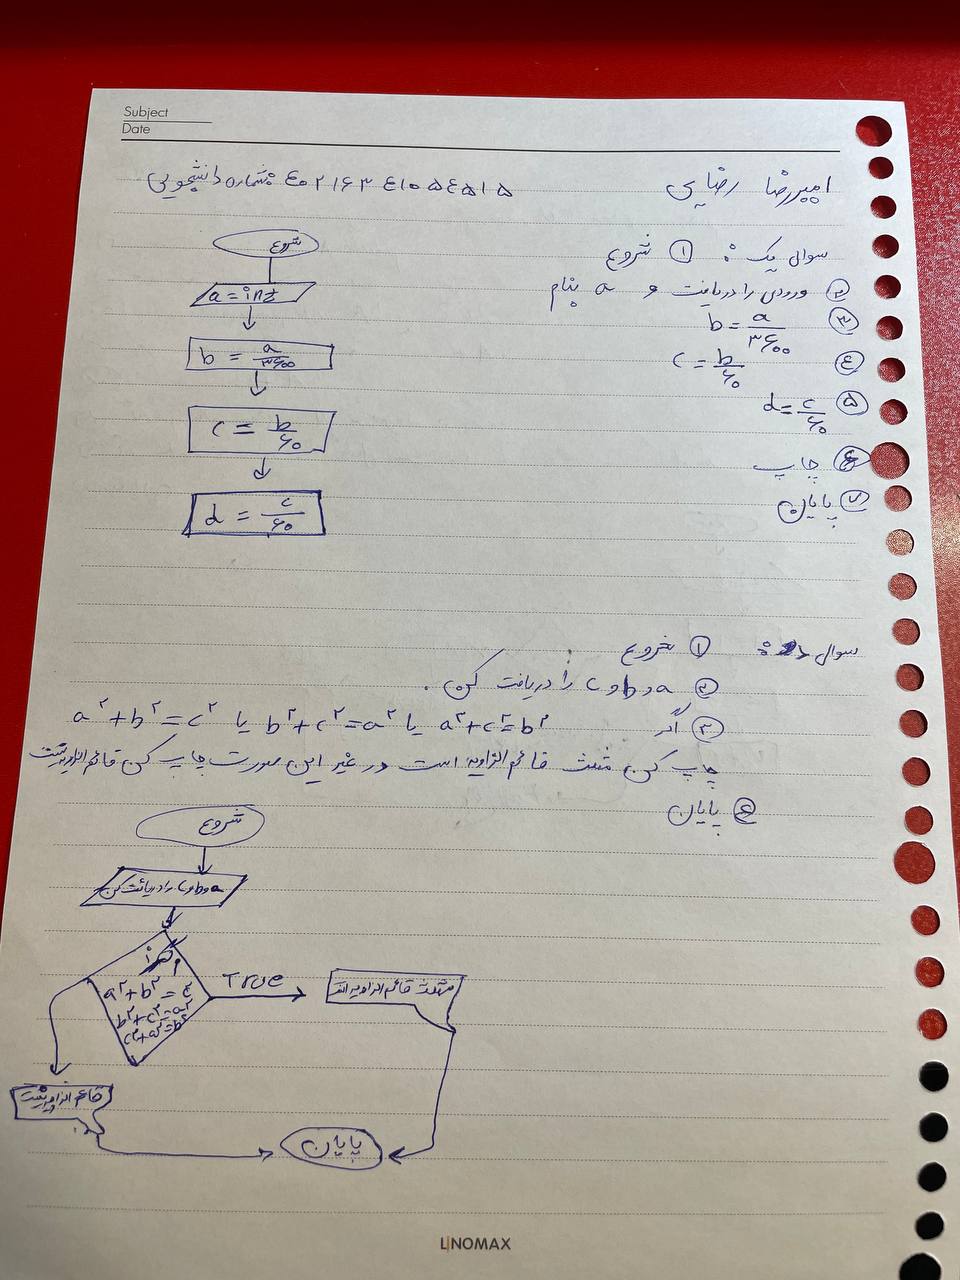 Subject
Date
امیررضا رضایی
شماره دانشجویی: ٤٠٢١۶٣٤١٠۵٤۵١۵
سوال یک : ① شروع
② ورودی را دریافت و a بنام
③ b = a/٣۶٠٠
④ c = b/۶٠
⑤ d = c/۶٠
⑥ چاپ
⑦ پایان
شروع
a = int
b = a/٣۶٠٠
c = b/۶٠
d = c/۶٠
سوال دو : ① شروع
② a و b و c را دریافت کن .
③ اگر a²+c²=b² یا b²+c²=a² یا a²+b²=c²
چاپ کن مثلث قائم الزاویه است در غیر این صورت چاپ کن قائم الزاویه نیست
④ پایان
شروع
a و b و c را دریافت کن
a²+b²=c²
b²+c²=a²
c²+a²=b²
True
مثلث قائم الزاویه است
قائم الزاویه نیست
پایان
LINOMAX